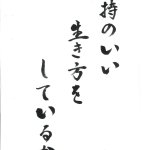 持のいい
生き方を
している